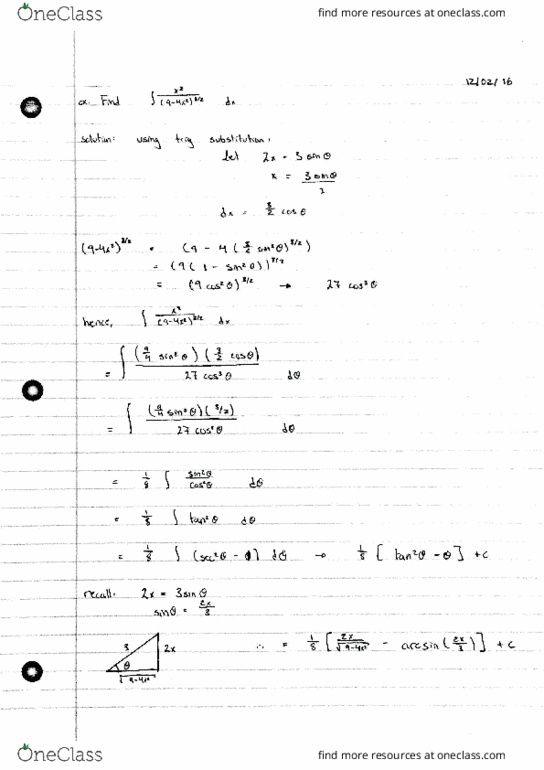 OneClass
find more resources at oneclass.com
12/02/16
ex. Find ∫ x²/(9-4x²)^3/2 dx
solution: using trig substitution,
let 2x = 3 sin θ
x = 3 sin θ / 2
dx = 3/2 cos θ
(9-4x²)^3/2 = (9 - 4(3/2 sin²θ)^3/2)
= (9(1 - sin²θ))^3/2
= (9 cos²θ)^3/2 → 27 cos³θ
hence, ∫ x²/(9-4x²)^3/2 dx
= ∫ (9/4 sin²θ)(3/2 cosθ) / 27 cos³θ dθ
= ∫ (9/4 sin²θ)(3/2) / 27 cos²θ dθ
= 1/8 ∫ sin²θ/cos²θ dθ
= 1/8 ∫ tan²θ dθ
= 1/8 ∫ (sec²θ - 1) dθ → 1/8 [tan²θ - θ] + c
recall: 2x = 3 sin θ
sin θ = 2x/3
3 2x θ √9-4x²
∴ = 1/8 [2x/√9-4x² - arcsin(2x/3)] + c
OneClass
find more resources at oneclass.com